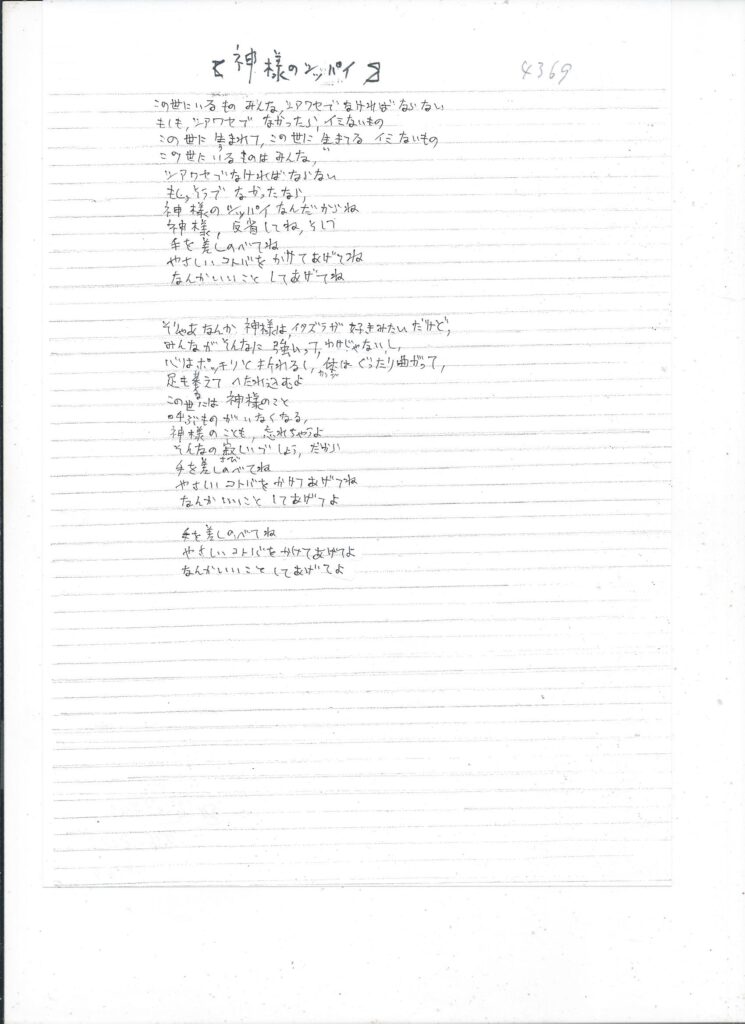 『神様のシッパイ』 4369
この世にいるもの みんな、シアワセでなければならない
もしも、シアワセで なかったら、イミないもの
この世に 生まれて、この世に 生きてる イミないもの
この世に いるものはみんな、
シアワセでなければならない
もし、そうで なかったなら、
神様のシッパイなんだからね
神様、反省してね、そして
手を差しのべてね
やさしいコトバを かけてあげてね
なんかいいこと してあげてね
そりゃあ なんか 神様は、イタズラが 好きみたいだけど、
みんながそんなに 強いって、わけじゃないし、
心はポッキリと折れるし、体は ぐったり曲がって、
足も萎えて へたれ込むよ
この世には 神様のこと
呼ぶものが いなくなる、
神様のことも、忘れちゃうよ
そんなの寂しいでしょう、だから
手を差しのべてね
やさしいコトバをかけてあげてね
なんかいいこと してあげてよ
手を差しのべてね
やさしいコトバをかけてあげてよ
なんかいいこと してあげてよ